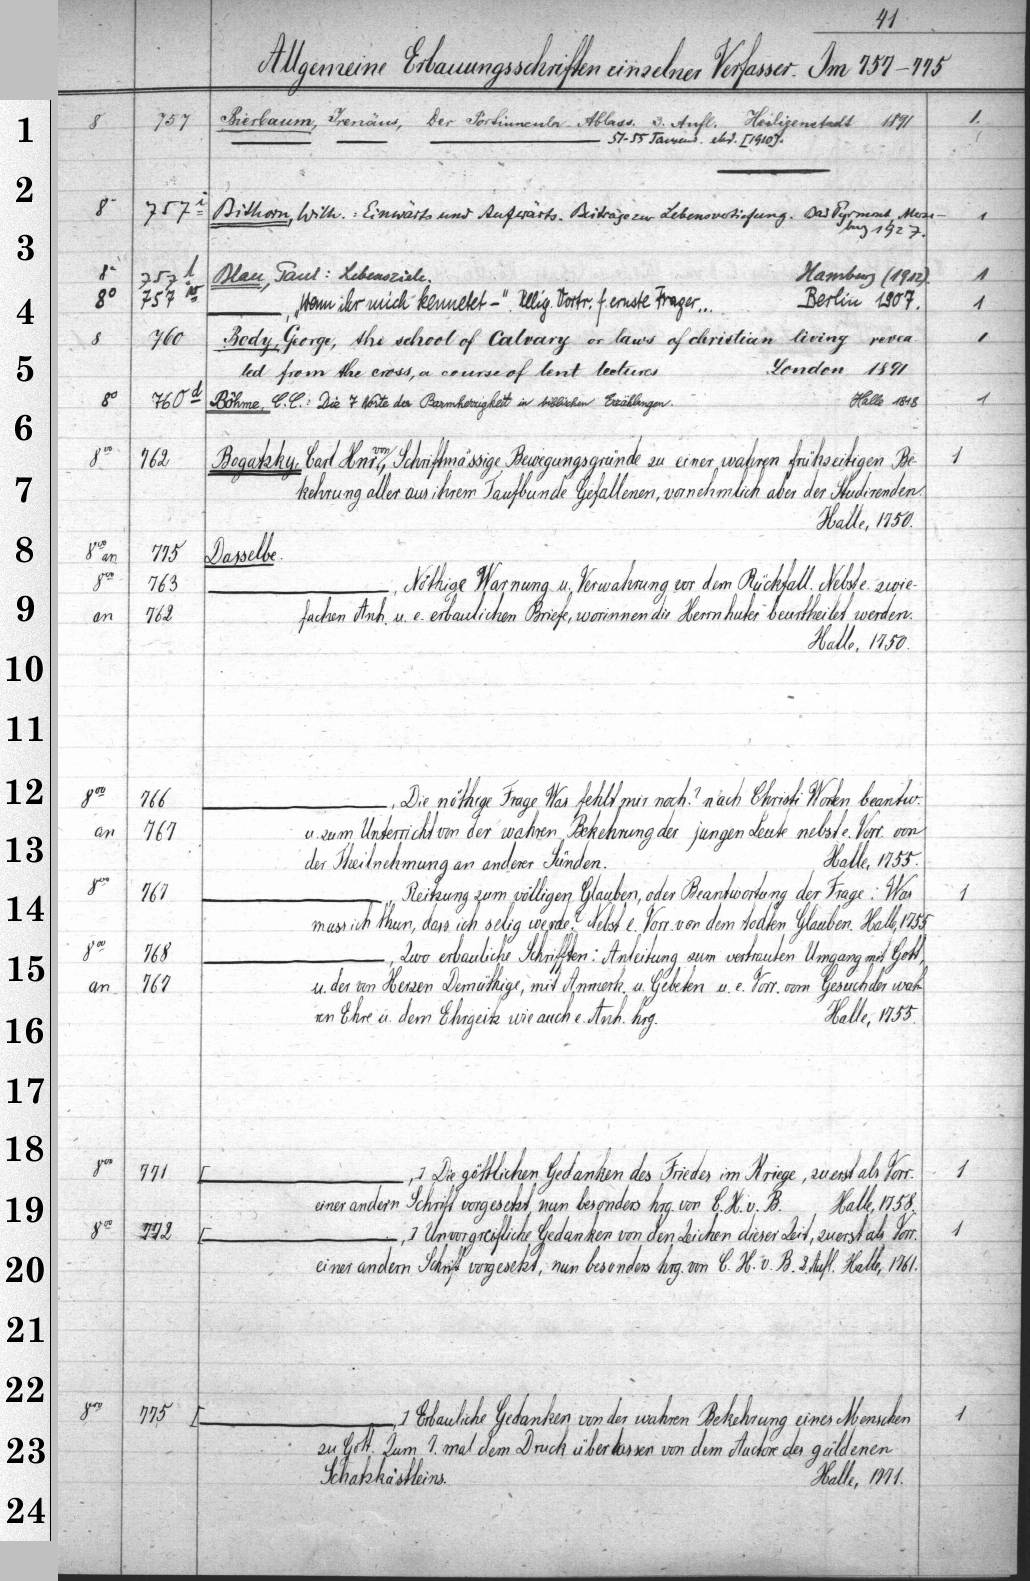 41
Allgemeine Erbauungsschriften einzelner Verfasser. Im 757–775
1
8 757 Bierbaum, Irenäus, Der Portiuncula-Ablass. 3. Aufl. Heiligenstadt 1891 1.
51-55 Tausend. ebd. [1910].
2
8° 757 i Bithorn, Wilh.: Einwärts und Aufwärts. Beiträge zur Lebensvertiefung. Bad Pyrmont, Merse- 1
burg 1927.
3
8° 757 l Blau, Paul: Lebensziele. Hamburg (1912). 1
4
8° 757 m , „Wenn ihr mich kennetet –". Relig. Vortr. f. ernste Frager... Berlin 1907. 1
8 760 Body, George, the school of Calvary or laws of christian living revea 1
5
led from the cross, a course of lent lectures London 1891
8° 760 d Böhme, C. C.: Die 7 Worte der Barmherzigkeit in biblischen Erzählungen. Halle 1818 1
6
8vo 762 Bogatzky, Carl Hnr. von, Schriftmässige Bewegungsgründe zu einer wahren frühzeitigen Be- 1
7
kehrung aller aus ihrem Taufbunde Gefallenen, vornehmlich aber der Studirenden
Halle, 1750.
8
8vo an 775 Dasselbe.
8vo 763 , Nöthige Warnung u. Verwahrung vor dem Rückfall. Nebst e. zwie-
9
an 762 fachen Anh. u. e. erbaulichen Briefe, worinnen die Herrnhuter beurtheilet werden.
Halle, 1750.
10
11
12
8vo 766 , Die nöthige Frage Was fehlt mir noch? nach Christi Worten beantw.
an 767 u. zum Unterricht von der wahren Bekehrung der jungen Leute nebst e. Vorr. von
13
der Theilnehmung an anderer Sünden. Halle, 1755.
8vo 767 , Reitzung zum völligen Glauben, oder Beantwortung der Frage: Was 1
14
muss ich thun, dass ich selig werde? Nebst e. Vorr. von dem todten Glauben. Halle, 1755
8vo 768 , Zwo erbauliche Schrifften: Anleitung zum vertrauten Umgang mit Gott,
15
an 767 u. der von Herzen Demüthige, mit Anmerk. u. Gebeten u. e. Vorr. vom Gesuch der wah-
16
ren Ehre u. dem Ehrgeitz wie auch e. Anh. hrg. Halle, 1755.
17
18
8vo 771 [ , ] Die göttlichen Gedanken des Friedes im Kriege, zuerst als Vorr. 1
19
einer andern Schrift vorgesetzt, nun besonders hrg. von C. H. v. B. Halle, 1758.
8vo 772 [ , ] Unvorgreifliche Gedanken von den Zeichen dieser Zeit, zuerst als Vorr. 1
20
einer andern Schrift vorgesetzt, nun besonders hrg. von C. H. v. B. 2. Aufl. Halle, 1761.
21
22
8vo 775 [ , ] Erbauliche Gedanken von der wahren Bekehrung eines Menschen 1
23
zu Gott. Zum 1. mal dem Druck überlassen von dem Auctore des güldenen
Schatzkästleins. Halle, 1771.
24